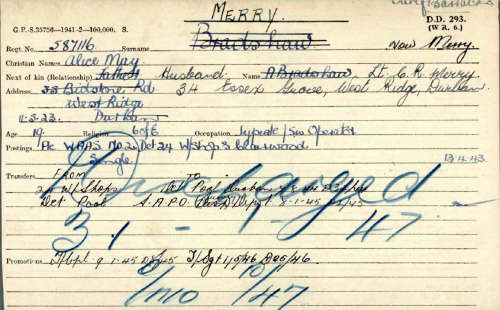 MERRY.
G.P.-S.35756-1941-2-100,000. S.
D.D. 293.
(W.R. 6.)
Regt. No. 587116 Surname Bradshaw now Merry.
Christian Names Alice May
Next of kin (Relationship) Father Husband Name A Bradshaw, Lt. C.R. Merry
Address 33 Bidstone Rd 34 Essex Grove, West Ridge, Durban.
West Ridge
Durban
11.5.23.
Age 19. Religion C of E Occupation Typiste / Sw Operator
Postings Pte WAAS No. 2 Det 24 W/Shops
Single 13.4.43
Transfers From To
W/Shops Pool
Det Pool A.A.P.O. 9-1-45
Discharged
31 - 1 - 47
Promotions T/Cpl 9-1-45 T/Sgt 1/5/46
10/47